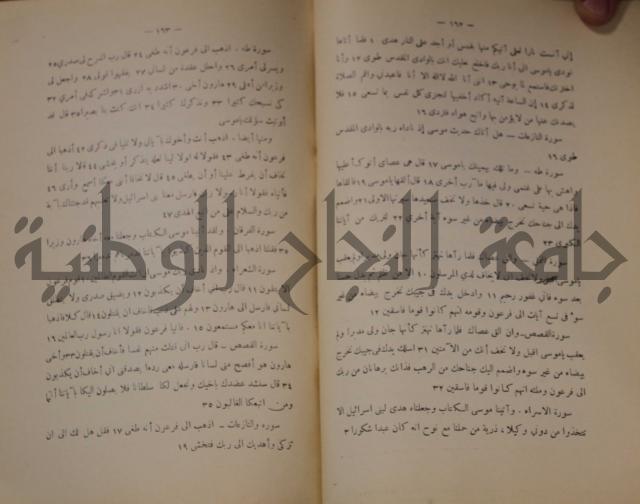 — ١٩٢ —
إني آنست نارا لعلي آتيكم منها بقبس أو أجد على النار هدى ١٠ فلما أتاها
نودي ياموسى اني أنا ربك فاخلع نعليك انك بالوادي المقدس طوى ١٢ وأنا
اخترتك فاستمع لما يوحى ١٣ انني أنا الله لااله الا أنا فاعبدني واقم الصلاة
لذكري ١٤ إن الساعة آتية أكاد أخفيها لتجزى كل نفس بما تسعى ١٥ فلا
يصدنك عنها من لايؤمن بها واتبع هواه فتردى ١٦
سورة النازعات — هل أتاك حديث موسى إذ ناداه ربه بالوادي المقدس
طوى ١٦
سورة طه — وما تلك بيمينك ياموسى ١٧ قال هي عصاي أتوكأ عليها
وأهش بها على غنمي ولي فيها مآرب أخرى ١٨ قال ألقها ياموسى ١٩ فألقاها
فاذا هي حية تسعى ٢٠ قال خذها ولا تخف سنعيدها سيرتها الاولى ٢١ واضمم
يدك الى جناحك تخرج بيضاء من غير سوء آية أخرى ٢٢ لنريك من آياتنا
الكبرى ٢٣
فلما رآها تهتز كأنها
ياموسى لا تخف اني لايخاف لدي المرسلون ١٠ الا من
بعد سوء فاني غفور رحيم ١١ وادخل يدك في جيبك تخرج بيضاء من غير
سوء في تسع آيات الى فرعون وقومه انهم كانوا قوما فاسقين ١٢
سورة القصص — وان الق عصاك فلما رآها تهتز كأنها جان ولى مدبرا ولم
يعقب ياموسى اقبل ولا تخف أنك من الآمنين ٣١ اسلك يدك في جيبك تخرج
بيضاء من غير سوء واضمم اليك جناحك من الرهب فذانك برهانان من ربك
الى فرعون وملئه انهم كانوا قوما فاسقين ٣٢
سورة الاسراء — وآتينا موسى الكتاب وجعلناه هدى لبنى اسرائيل الا
تتخذوا من دوني وكيلا، ذرية من حملنا مع نوح انه كان عبدا شكورا ٣
— ١٩٣ —
سورة طه — اذهب الى فرعون أنه طغى ٢٤ قال رب اشرح لى صدري ٢٥
ويسرلي أمري ٢٦ واحلل عقدة من لساني ٢٧ يفقهوا قولى ٢٨ واجعل لى
وزيرا من أهلى ٢٩ هارون أخى ٣٠ اشدد به ازرى ٣١ واشركه في أمري ٣٢
كي نسبحك كثيرا ٣٣ ونذكرك كثيرا ٣٤ انك كنت بنا بصيرا ٣٥ قال قد
أوتيت سؤلك ياموسى
ومنها أيضا — اذهب أنت وأخوك بآياتي ولا تنيا في ذكرى ٤٢ أذهبا الى
فرعون أنه طغى ٤٣ فقولا له قولا لينا لعله يتذكر أو يخشى ٤٤ قالا ربنا أننا
نخاف أن يفرط علينا أو أن يطغى ٤٥ قال لا تخافا أننى معكما أسمع وأرى ٤٦
فأتياه فقولا أنا رسولا ربك فارسل معنا بنى اسرائيل ولا تعذبهم قد جئناك بآية
من ربك والسلام على من اتبع الهدى ٤٧
سورة الفرقان — ولقد آتينا موسى الكتاب وجعلنا معه أخاه هارون وزيرا
٣٥ فقلنا اذهبا الى القوم الذين كذبوا بآياتنا
سورة الشعراء — واذ نادى ربك موسى
الا يتقون ١١ قال رب انى أخاف أن يكذبون ١٢ ويضيق صدرى ولا ينطلق
لسانى فارسل الى هارون ١٣ ولهم على ذنب فأخاف أن يقتلون ١٤ قال كلا فاذهبا
بآياتنا انا معكم مستمعون ١٥ فأتيا فرعون فقولا انا رسول رب العالمين ١٦
سورة القصص — قال رب انى قتلت منهم نفسا فأخاف أن يقتلون ٣٣ وأخى
هارون هو أفصح منى لسانا فارسله معى ردءا يصدقنى انى أخاف أن يكذبون
٣٤ قال سنشد عضدك باخيك ونجعل لكما سلطانا فلا يصلون اليكما بآياتنا أنتما
ومن اتبعكما الغالبون ٣٥
سوره والنازعات — اذهب الى فرعون أنه طغى ١٧ فقل هل لك الى ان
تزكى وأهديك الى ربك فتخشى ١٩
جامعة النجاح الوطنية